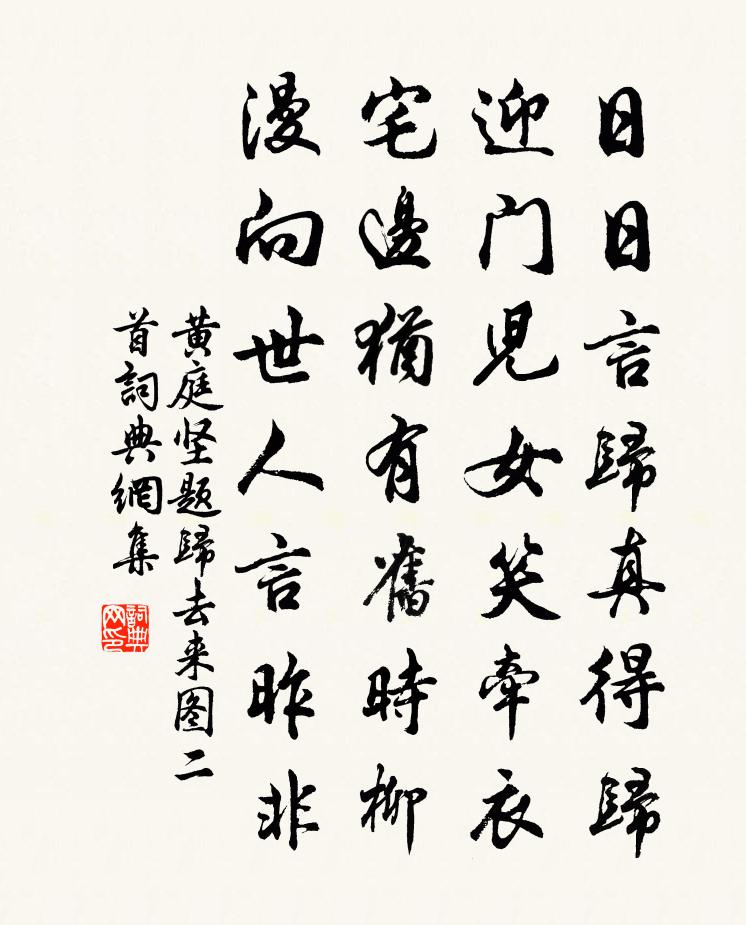 日日言歸真得歸
迎門兒女笑牽衣
宅邊猶有舊時柳
漫向世人言昨非
黄庭坚题歸去来图二
首詞典網集
詞典
网印